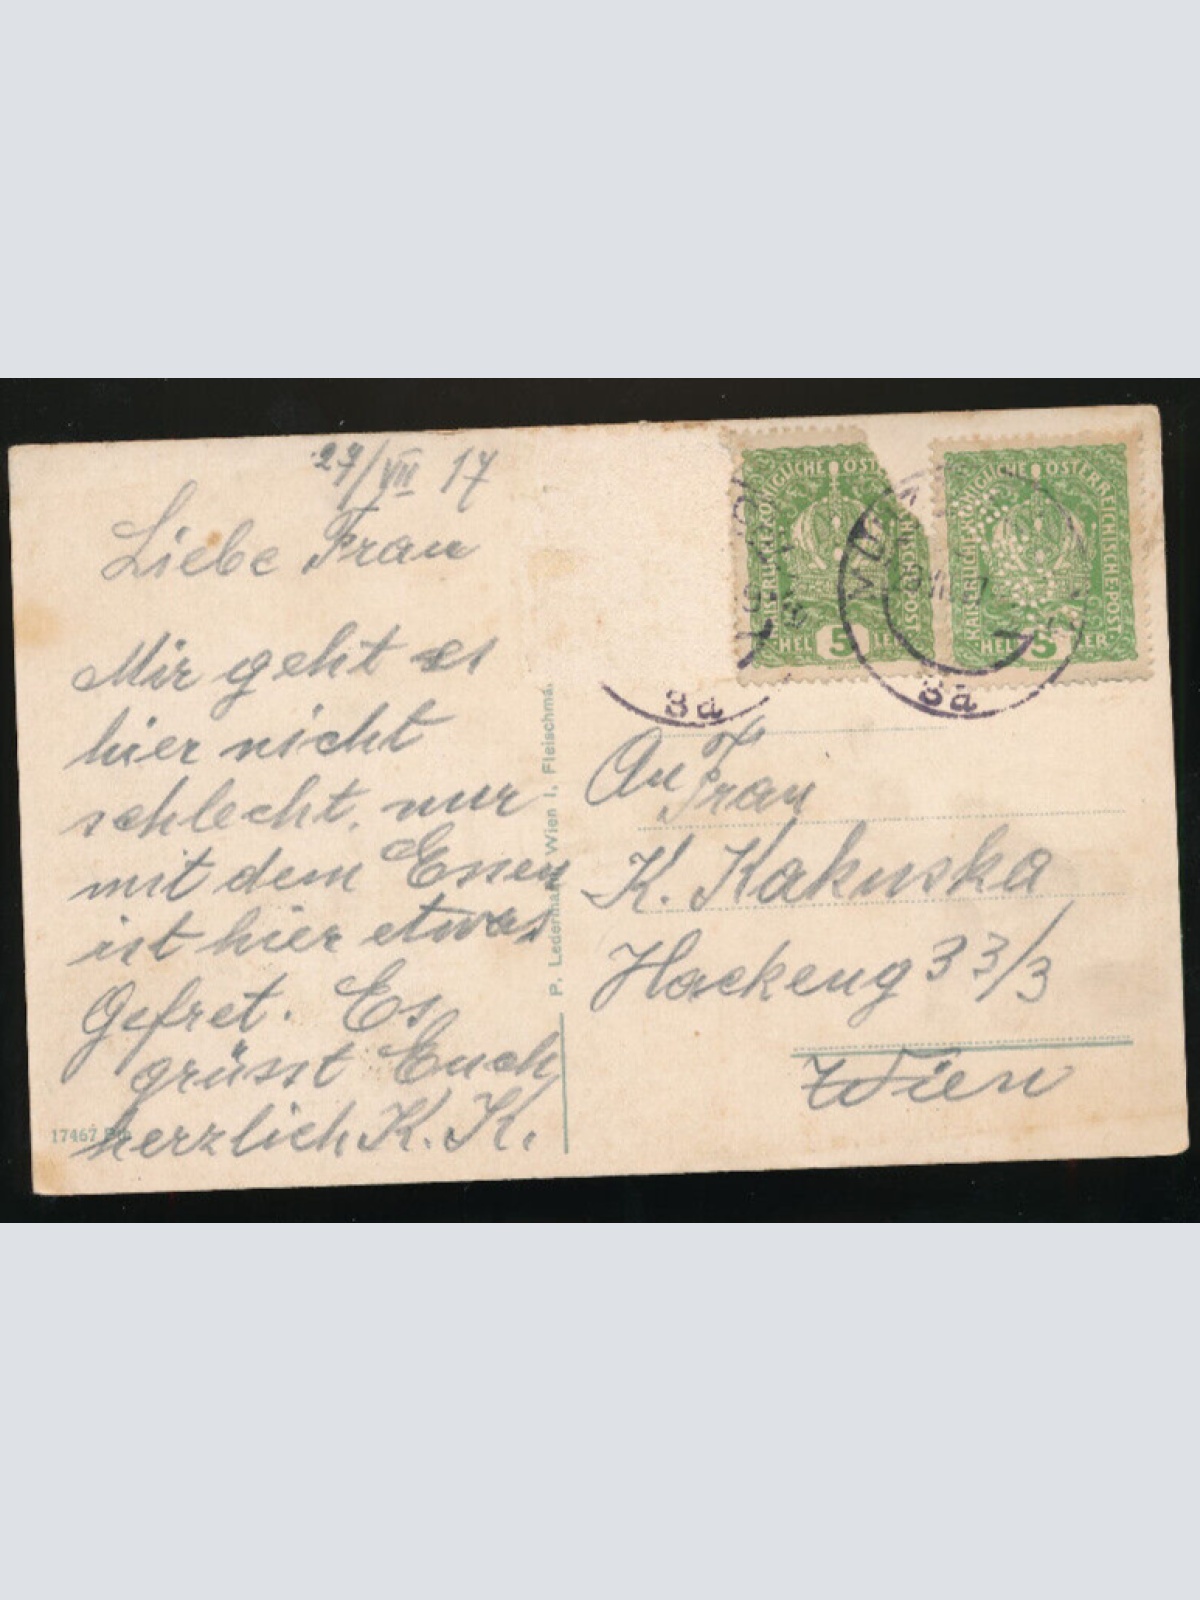 27/VII 17
Liebe Frau
Mir geht es
hier nicht
schlecht, nur
mit dem Essen
ist hier etwas
Gefret. Es
grüsst Euch
herzlich K. K.
17467
P. Lederman Wien I. Fleischma
KAISERLICHE KÖNIGLICHE ÖST
REICHISCHE POST
HEL 5 LER
KAISERLICHE KÖNIGLICHE ÖSTERREICHISCHE POST
HEL 5 LER
3a
3a
An Frau
K. Kakuska
Hackeng 33/3
Wien